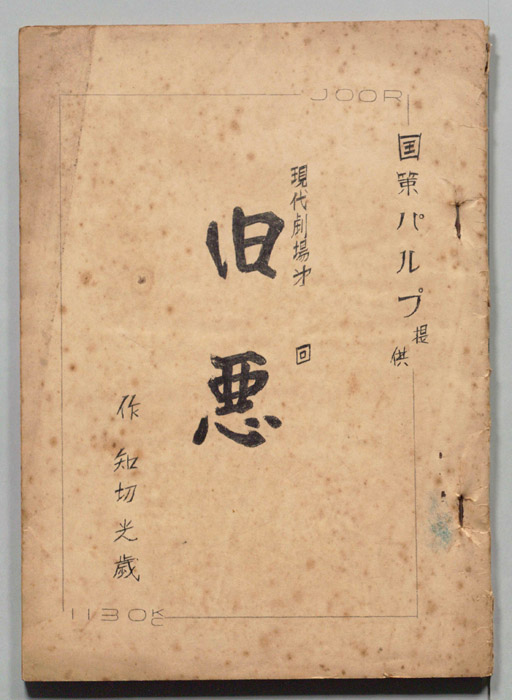 JOOR
国策パルプ提供
現代劇場第 回
旧悪
作 知切光歳
1130KC